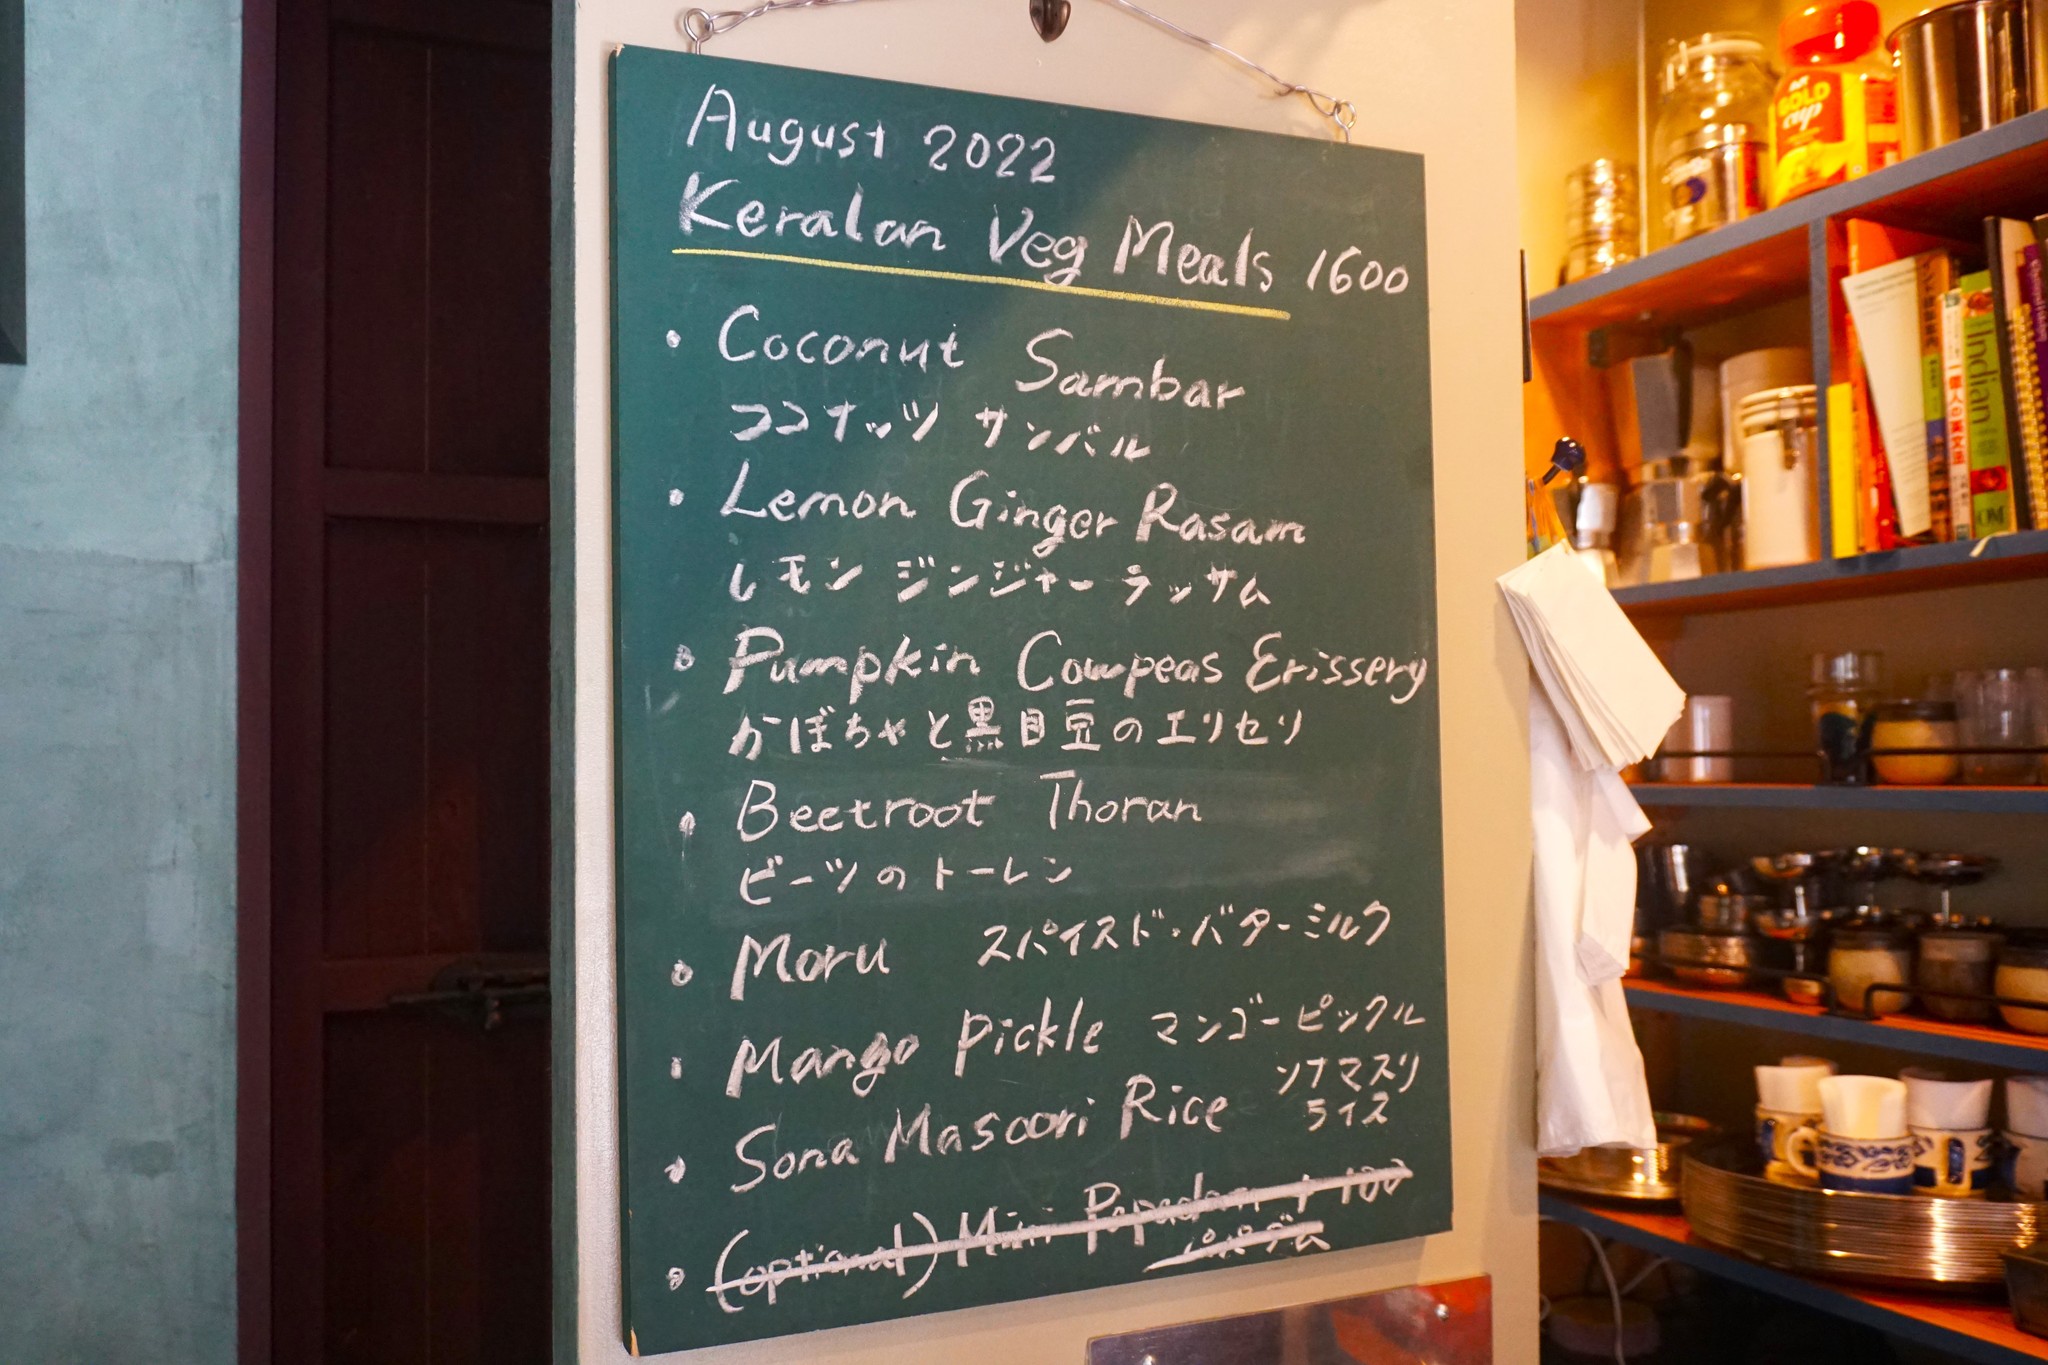 August 2022
Keralan Veg Meals 1600
• Coconut Sambar
ココナッツ サンバル
• Lemon Ginger Rasam
レモン ジンジャー ラッサム
• Pumpkin Cowpeas Erissery
かぼちゃと黒目豆のエリセリ
• Beetroot Thoran
ビーツのトーレン
• Moru スパイスド・バターミルク
• Mango Pickle マンゴーピックル
• Sona Masoori Rice ソナマスリ
ライス
• (optional) Mini Papadam + 100
パパダム
GOLD
cup
Indian